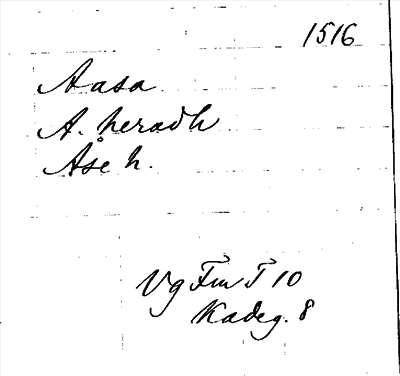 1516
Aasa
A. heradh
Åse h.
Vg Fm T 10
Kadeg. 8